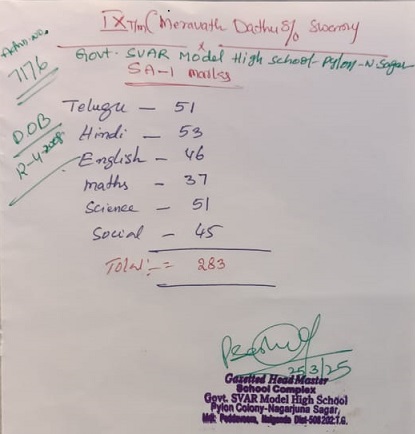 IX T/m (Meravath Dathu S/o Swamy
Govt. SVAR Model High School - Pylon - N Sagar
SA-1 marks
Admn.no.
7176
DOB
Telugu — 51
Hindi — 53
English — 46
maths — 37
Science — 51
Social — 45
Total:— = 283
25/3/25
Gazetted Head Master
School Complex
Govt. SVAR Model High School
Pylon Colony-Nagarjuna Sagar,
Nalgonda Dist-508202.T.G.